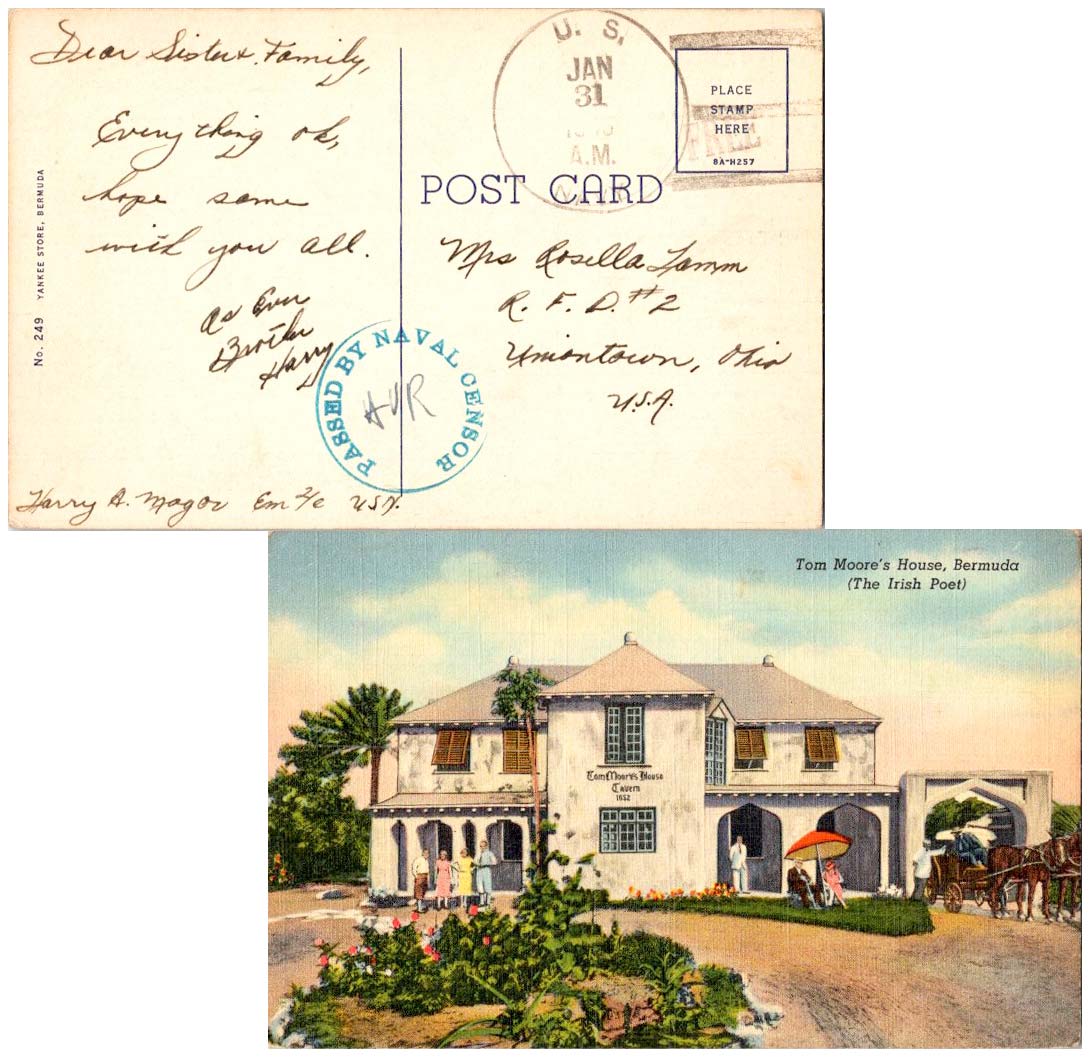 Dear Sister & Family,
Everything ok,
hope same
with you all.
As Ever
Brother
Harry
Harry A. Magor Em 2/c USN.
No. 249 YANKEE STORE, BERMUDA
PASSED BY NAVAL CENSOR
U. S.
JAN
31
A.M.
NAVY
FREE
PLACE
STAMP
HERE
8A-H257
POST CARD
Mrs Rosella Lamm
R. F. D. #2
Uniontown, Ohio
U.S.A.
Tom Moore's House, Bermuda
(The Irish Poet)
Tom Moore's House
Tavern
1652